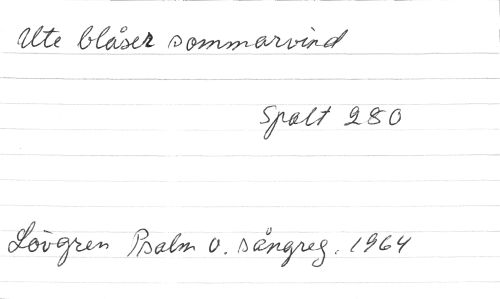 Ute blåser sommarvind
Spalt 280
Lövgren Psalm o. sångreg. 1964